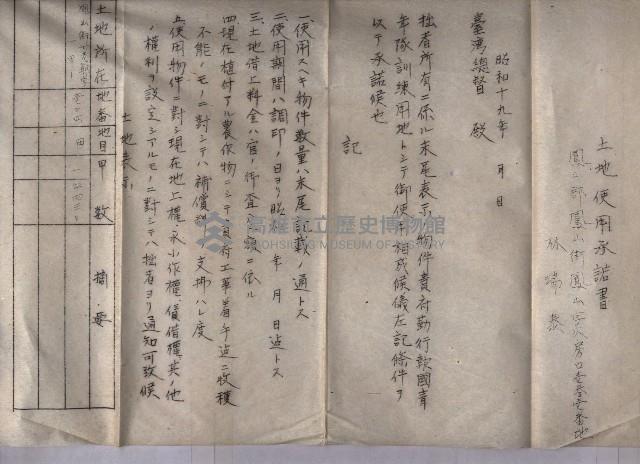 土地使用承諾書
鳳山郡鳳山街鳳山字火房口壱番地
林瑞泰
昭和十九年 月 日
臺灣總督 殿
拙者所有ニ係ル末尾表示物件貴府勤行報國青
年隊訓練用地トシテ御使用相成候儀左記條件ヲ
以テ承諾候也
記
一、使用スヘキ物件数量ハ末尾記載ノ通トス
二、使用期間ハ調印ノ日ヨリ昭和 年 月 日迄トス
三、土地借上料金ハ官ノ御査定額ニ依ル
四、現在植付アル農作物ニシテ貴府工事着手迄ニ收穫
不能ノモノニ對シテハ補償料支拂ハレ度
五、使用物件ニ對シ現在地上權、永小作權、賃借權其ノ他
ノ權利ヲ設定シアルモノニ對シテハ拙者ヨリ通知可致候
土地表示
土地所在 地番 地目 甲数 摘要
鳳山街 田
高雄市立歷史博物館
KAOHSIUNG MUSEUM OF HISTORY